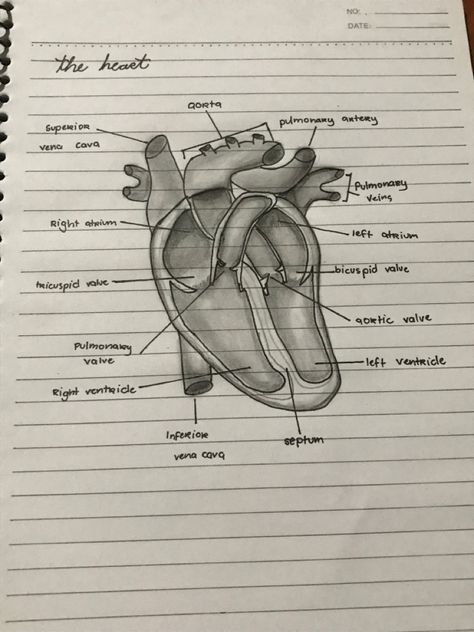 NO:
DATE:
the heart
aorta
pulmonary artery
superior
vena cava
Pulmonary
veins
Right atrium
left atrium
bicuspid valve
tricuspid valve
aortic valve
Pulmonary
valve
left ventricle
Right ventricle
Inferior
vena cava
septum